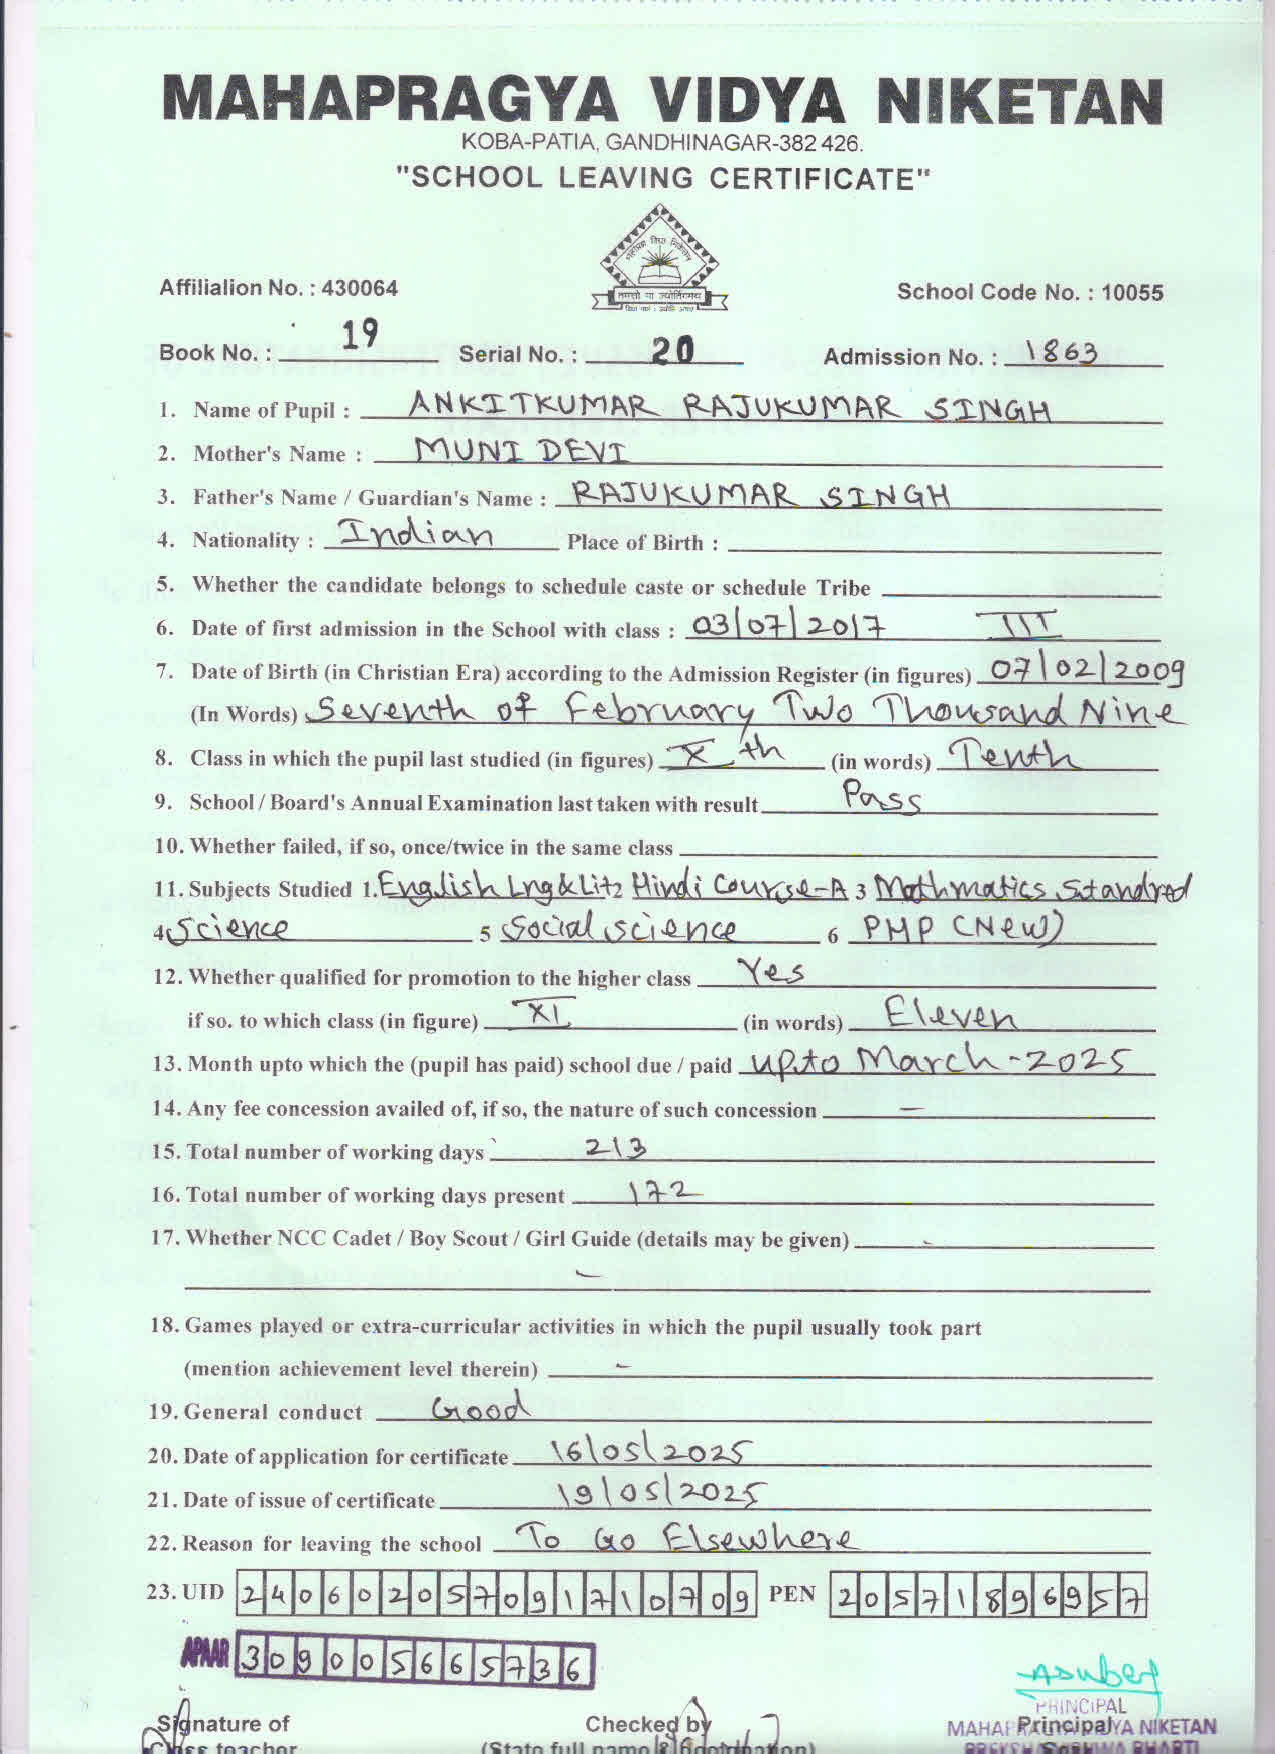 MAHAPRAGYA VIDYA NIKETAN
KOBA-PATIA, GANDHINAGAR-382 426.
"SCHOOL LEAVING CERTIFICATE"
महाप्रज्ञ विद्या निकेतन
तमसो मा ज्योतिर्गमय
Affilialion No. : 430064 School Code No. : 10055
Book No. : 19 Serial No. : 20 Admission No. : 1863
1. Name of Pupil : ANKITKUMAR RAJUKUMAR SINGH
2. Mother's Name : MUNI DEVI
3. Father's Name / Guardian's Name : RAJUKUMAR SINGH
4. Nationality : Indian Place of Birth :
5. Whether the candidate belongs to schedule caste or schedule Tribe
6. Date of first admission in the School with class : 03/07/2017 III
7. Date of Birth (in Christian Era) according to the Admission Register (in figures) 07/02/2009
(In Words) Seventh of February Two Thousand Nine
8. Class in which the pupil last studied (in figures) X th (in words) Tenth
9. School / Board's Annual Examination last taken with result Pass
10. Whether failed, if so, once/twice in the same class
11. Subjects Studied 1. English Lng & Lit 2 Hindi Course-A 3 Mathmatics Standred
4 Science 5 Social science 6 PHP (New)
12. Whether qualified for promotion to the higher class Yes
if so. to which class (in figure) XI (in words) Eleven
13. Month upto which the (pupil has paid) school due / paid up.to March-2025
14. Any fee concession availed of, if so, the nature of such concession —
15. Total number of working days 213
16. Total number of working days present 172
17. Whether NCC Cadet / Boy Scout / Girl Guide (details may be given) -
—
18. Games played or extra-curricular activities in which the pupil usually took part
(mention achievement level therein) —
19. General conduct Good
20. Date of application for certificate 16/05/2025
21. Date of issue of certificate 19/05/2025
22. Reason for leaving the school To Go Elsewhere
23. UID 240602057091710709 PEN 20571896957
APAAR 309005665736
PRINCIPAL
Signature of Checked by Principal
MAHAPRAGYA VIDYA NIKETAN
Class teacher (State full name & designation)
PREKSHA VISHWA BHARTI